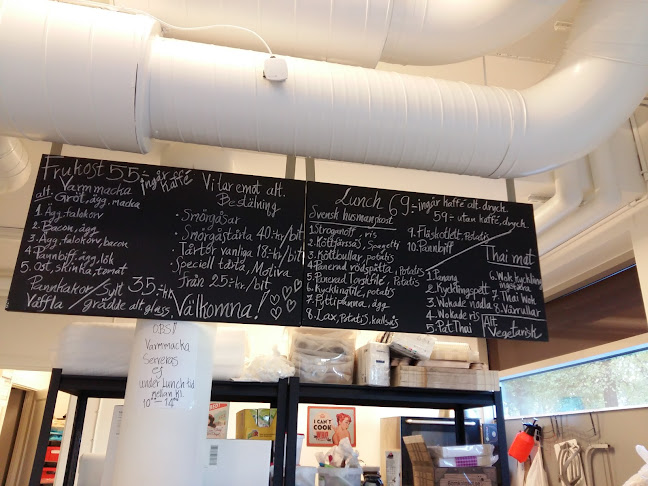 Frukost 55:-
ingår kaffe
Varmmacka
alt. Gröt, ägg, macka
1. Ägg, falokorv
2. Bacon, ägg
3. Ägg, falokorv, bacon
4. Pannbiff, ägg, lök
5. Ost, skinka, tomat
Pannkakor/Sylt 35:-
Våffla/grädde alt. glass
Vi tar emot alt.
Beställning
• Smörgåsar
• Smörgåstårta 40:-kr/bit
• Tårtor vanliga 18:-kr/bit
• Speciell tårta, Motiva
från 25:-kr/bit
Välkomna!
Lunch 69:- ingår kaffe alt. dryck
59:- utan kaffe, dryck
Svensk husmanskost
1. Stroganoff, ris
2. Köttfärssås, Spagetti
3. Köttbullar, potatis
4. Panerad rödspätta, Potatis
5. Panerad Torskfilé, Potatis
6. Kycklinggryta, potatis
7. Pyttipanna, ägg
8. Lax, Potatis, kallsås
9. Fläskotlett, Potatis
10. Pannbiff
Thai mat
1. Panang
2. Kycklingspett
3. Wokade nudla
4. Wokade ris
5. Pat Thai
6. Wok Kyckling
7. Thai Wok
8. Vårrullar
Alt.
Vegetarisk
OBS!!
Varmmacka
Serveras
ej
under Lunch tid
mellan kl.
10⁰⁰ - 14⁰⁰
I CAN'T
COOK